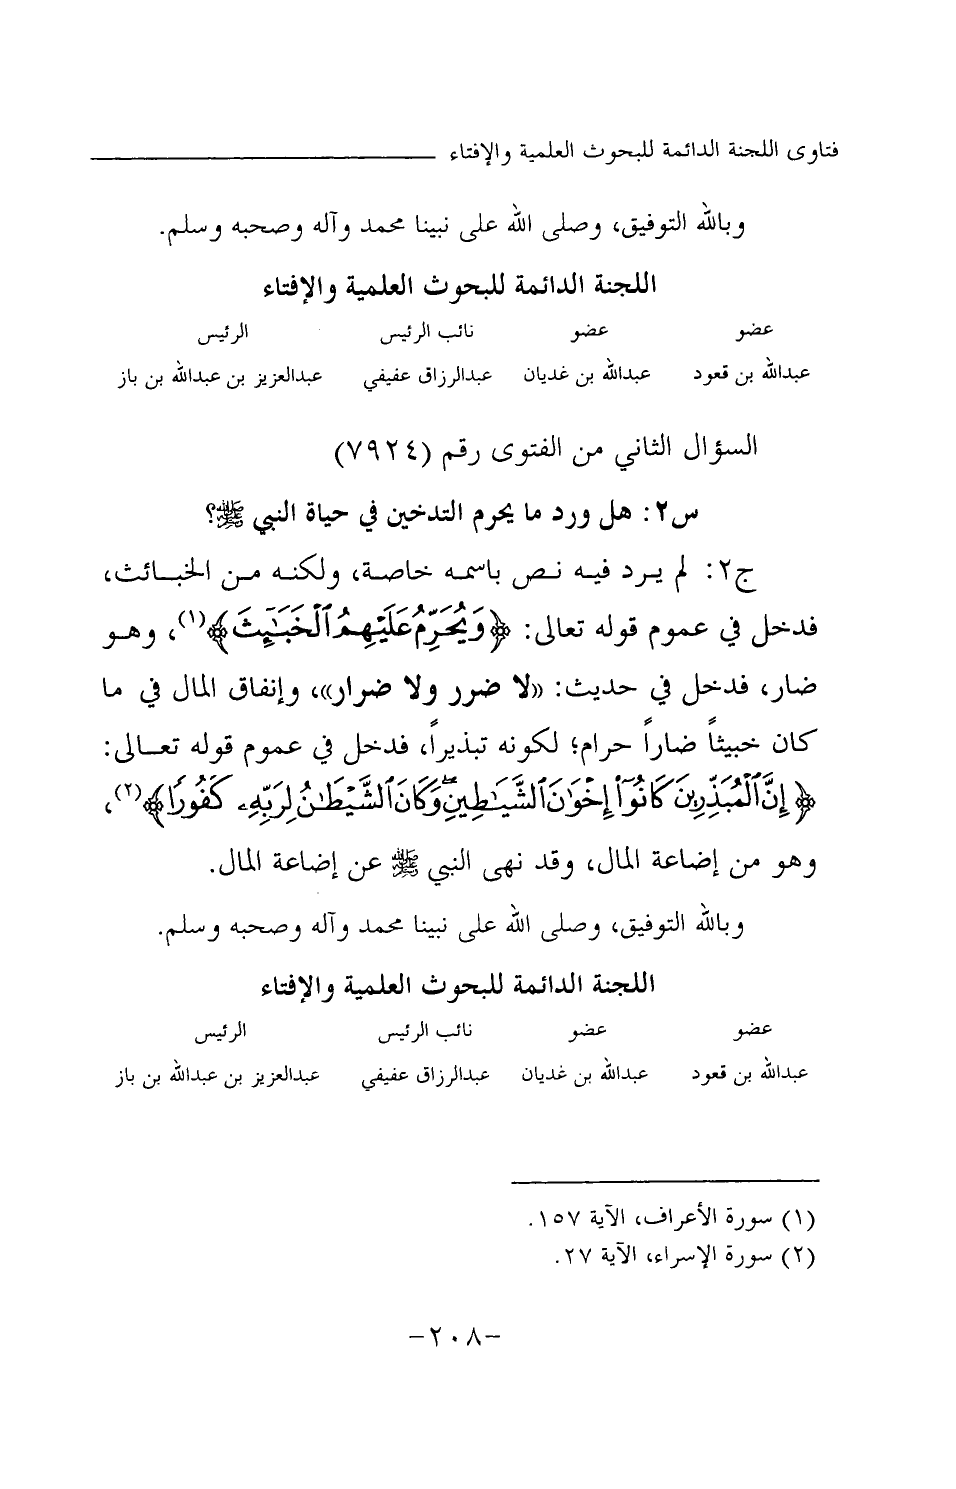 فتاوى اللجنة الدائمة للبحوث العلمية والإفتاء
وبالله التوفيق، وصلى الله على نبينا محمد وآله وصحبه وسلم.
اللجنة الدائمة للبحوث العلمية والإفتاء
عضو عضو نائب الرئيس الرئيس
عبدالله بن قعود عبدالله بن غديان عبدالرزاق عفيفي عبدالعزيز بن عبدالله بن باز
السؤال الثاني من الفتوى رقم (٧٩٢٤)
س٢: هل ورد ما يحرم التدخين في حياة النبي ﷺ؟
ج٢: لم يرد فيه نص باسمه خاصة، ولكنه من الخبائث،
فدخل في عموم قوله تعالى: ﴿وَيُحَرِّمُ عَلَيْهِمُ ٱلْخَبَٰٓئِثَ﴾(١)، وهو
ضار، فدخل في حديث: «لا ضرر ولا ضرار»، وإنفاق المال في ما
كان خبيثاً ضاراً حرام؛ لكونه تبذيراً، فدخل في عموم قوله تعالى:
﴿إِنَّ ٱلْمُبَذِّرِينَ كَانُوٓا۟ إِخْوَٰنَ ٱلشَّيَٰطِينِ ۖ وَكَانَ ٱلشَّيْطَٰنُ لِرَبِّهِۦ كَفُورًا﴾(٢)،
وهو من إضاعة المال، وقد نهى النبي ﷺ عن إضاعة المال.
وبالله التوفيق، وصلى الله على نبينا محمد وآله وصحبه وسلم.
اللجنة الدائمة للبحوث العلمية والإفتاء
عضو عضو نائب الرئيس الرئيس
عبدالله بن قعود عبدالله بن غديان عبدالرزاق عفيفي عبدالعزيز بن عبدالله بن باز
(١) سورة الأعراف، الآية ١٥٧.
(٢) سورة الإسراء، الآية ٢٧.
-٢٠٨-